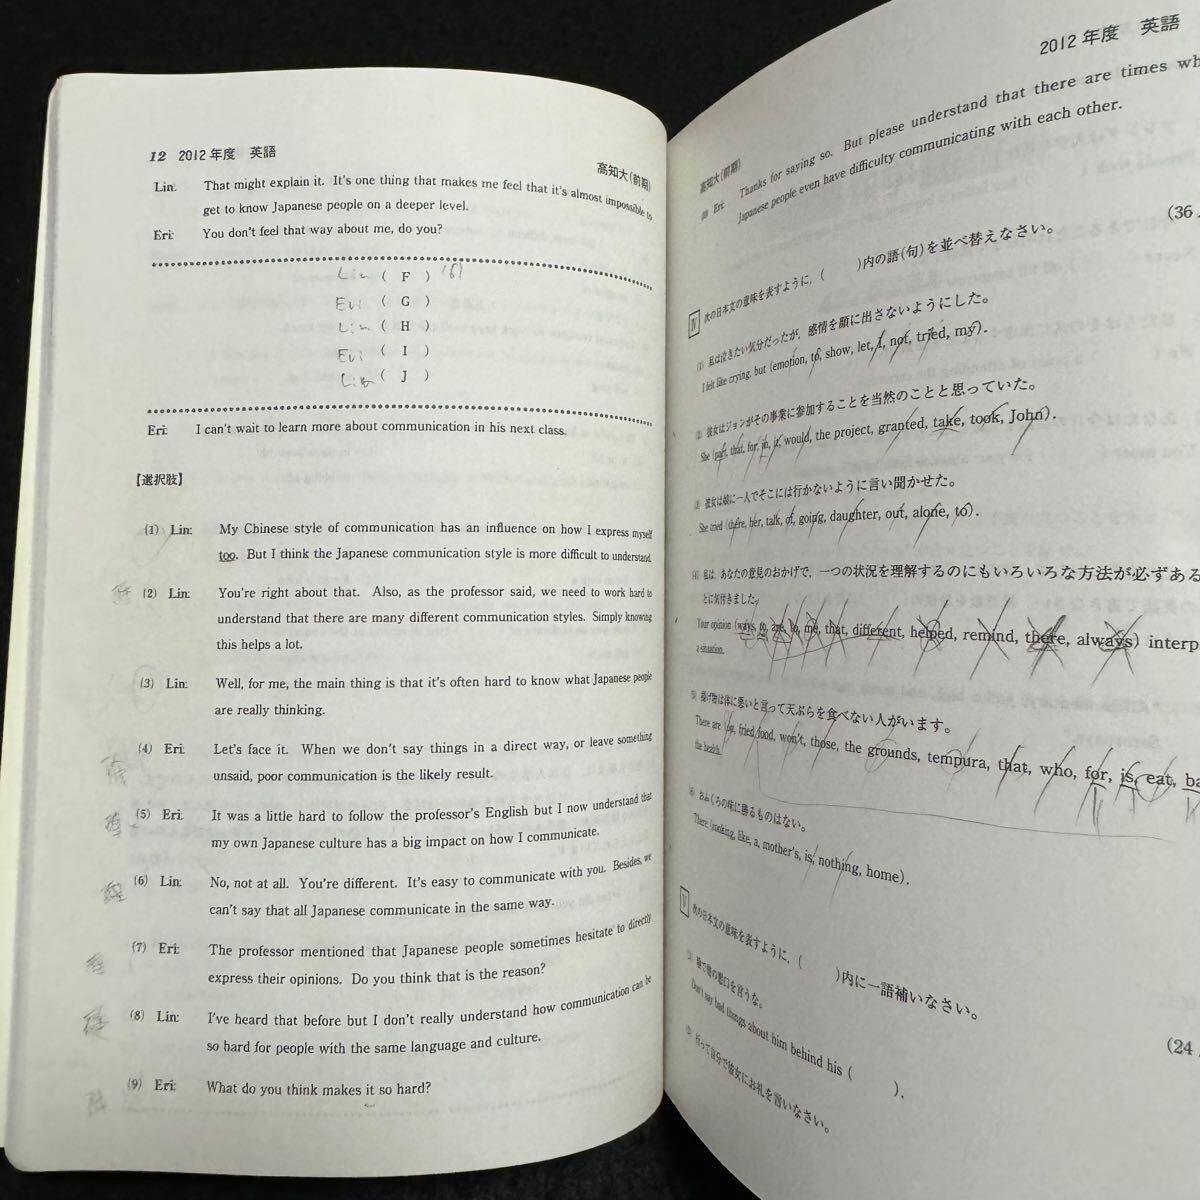 12 2012年度 英語
高知大(前期)
Lin: That might explain it. It's one thing that makes me feel that it's almost impossible to
get to know Japanese people on a deeper level.
Eri: You don't feel that way about me, do you?
Lin ( F ) (6)
Eri ( G )
Lin ( H )
Eri ( I )
Lin ( J )
Eri: I can't wait to learn more about communication in his next class.
【選択肢】
(1) Lin: My Chinese style of communication has an influence on how I express myself
too. But I think the Japanese communication style is more difficult to understand.
(2) Lin: You're right about that. Also, as the professor said, we need to work hard to
understand that there are many different communication styles. Simply knowing
this helps a lot.
(3) Lin: Well, for me, the main thing is that it's often hard to know what Japanese people
are really thinking.
(4) Eri: Let's face it. When we don't say things in a direct way, or leave something
unsaid, poor communication is the likely result.
(5) Eri: It was a little hard to follow the professor's English but I now understand that
my own Japanese culture has a big impact on how I communicate.
(6) Lin: No, not at all. You're different. It's easy to communicate with you. Besides, we
can't say that all Japanese communicate in the same way.
(7) Eri: The professor mentioned that Japanese people sometimes hesitate to directly
express their opinions. Do you think that is the reason?
(8) Lin: I've heard that before but I don't really understand how communication can be
so hard for people with the same language and culture.
(9) Eri: What do you think makes it so hard?
2012年度 英語
高知大(前期)
(10) Eri: Thanks for saying so. But please understand that there are times wh
Japanese people even have difficulty communicating with each other.
(36
Ⅳ 次の日本文の意味を表すように,( )内の語(句)を並べ替えなさい。
(1) 私は泣きたい気分だったが,感情を顔に出さないようにした。
I felt like crying, but (emotion, to, show, let, I, not, tried, my).
(2) 彼女はジョンがその事業に参加することを当然のことと思っていた。
She (part, that, for, in, it, would, the project, granted, take, took, John).
(3) 彼女は娘に一人でそこには行かないように言い聞かせた。
She tried (there, her, talk, of, going, daughter, out, alone, to).
(4) 私は,あなたの意見のおかげで,一つの状況を理解するのにもいろいろな方法が必ずある
とに気付きました。
Your opinion (ways, to, are, to, me, that, different, helped, remind, there, always) interp
a situation.
(5) 揚げ物は体に悪いと言って天ぷらを食べない人がいます。
There are (on, fried food, won't, those, the grounds, tempura, that, who, for, is, eat, ba
the health.
(6) おふくろの味に勝るものはない。
There (cooking, like, a, mother's, is, nothing, home).
Ⅴ 次の日本文の意味を表すように,( )内に一語補いなさい。
(24
(1) 陰で彼の悪口を言うな。
Don't say bad things about him behind his ( ).
(2) 折って自分で彼女にお礼を言いなさい。